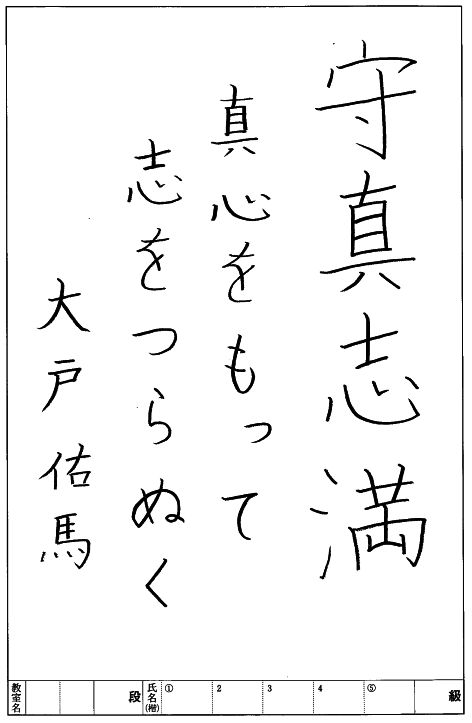 守真志満
真心をもって
志をつらぬく
大戸佑馬
級
⑤
4
3
2
①
氏名(楷)
段
教室名